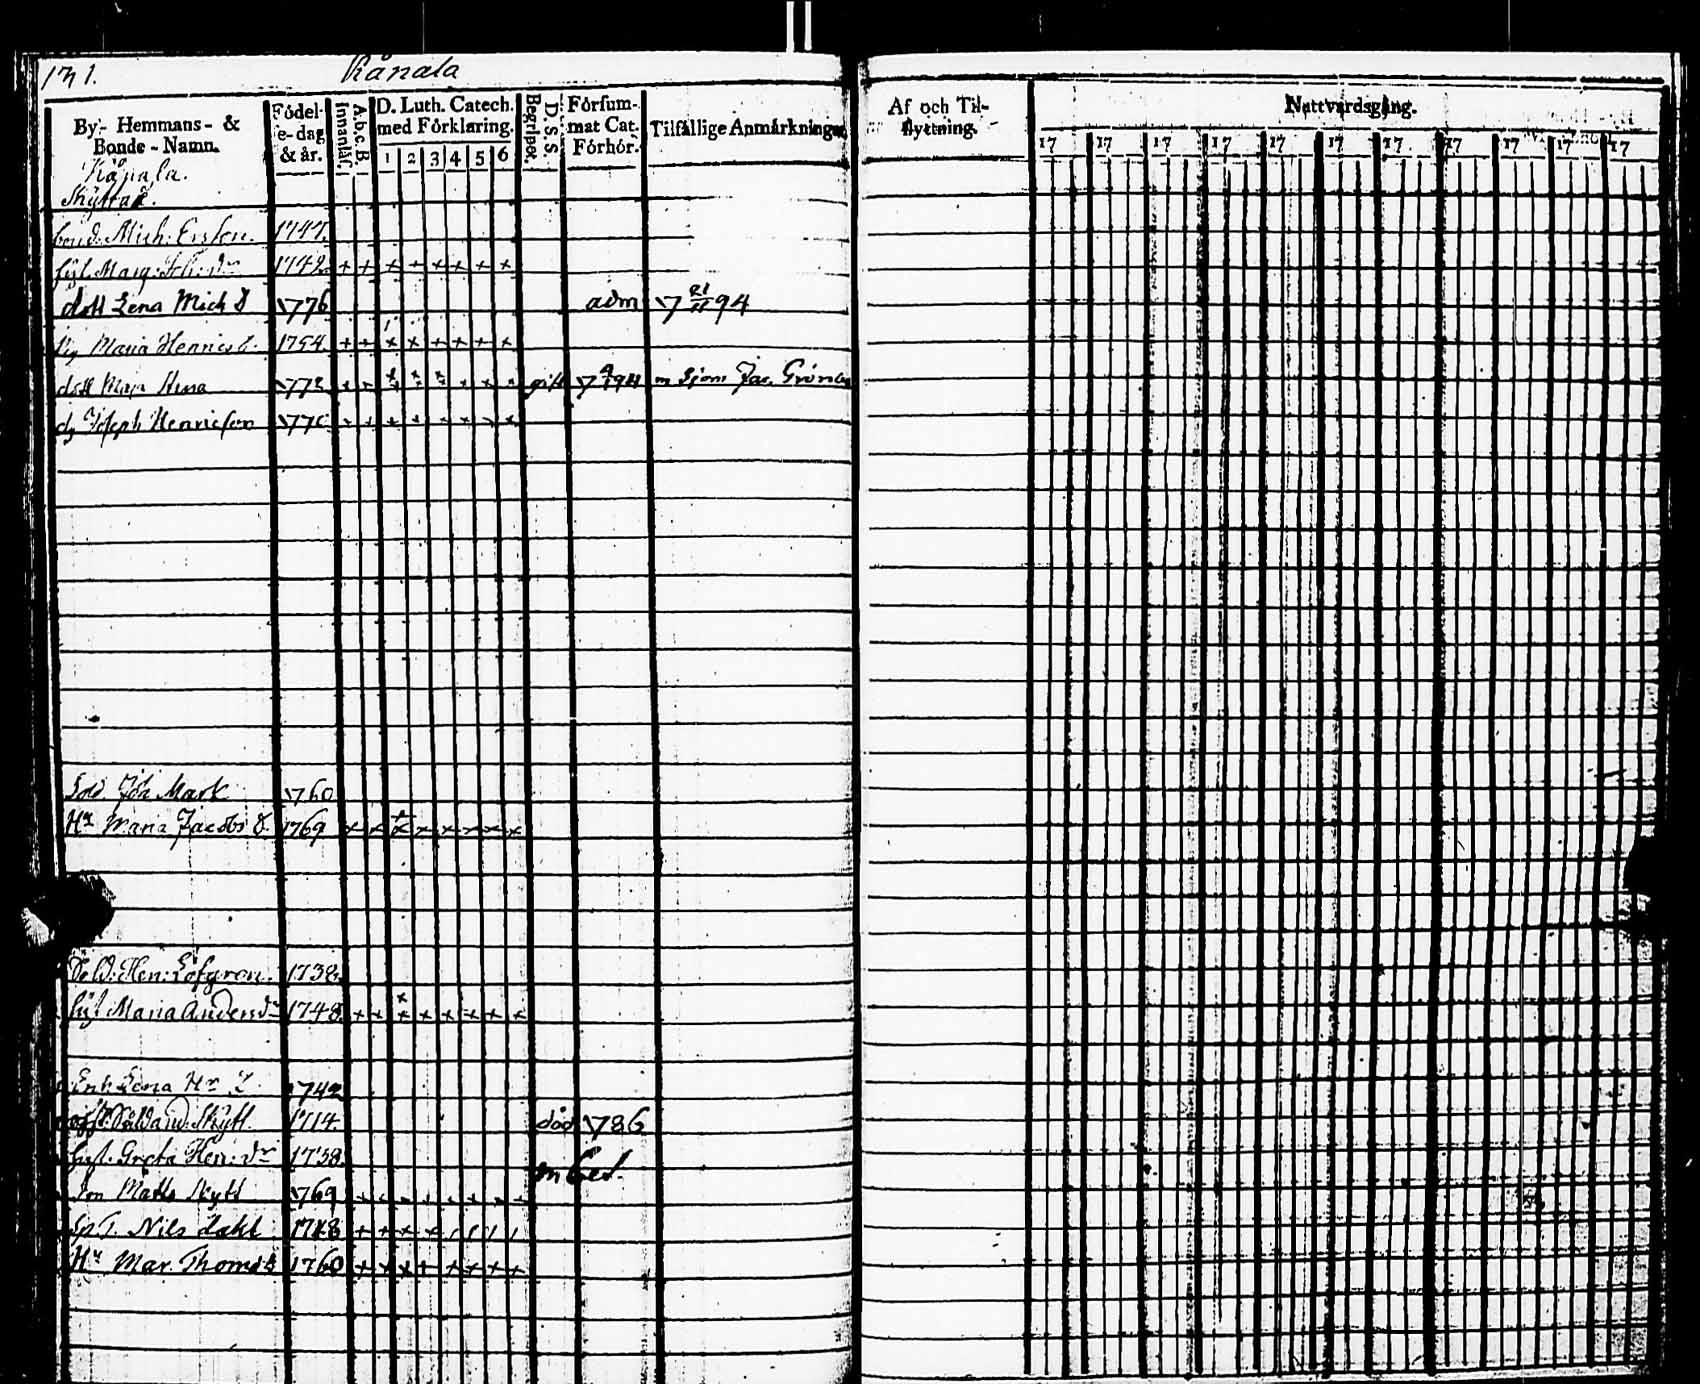 171. Kånala
By- Hemmans- & Bonde-Namn.
Födel-e-dag & år.
A.b.c.B. Innanläs.
D. Luth. Catech. med Förklaring.
1 2 3 4 5 6
D. S. S. Begripet.
Försum-mat Cat. Förhör.
Tilfällige Anmärkningar
Af och Til-flyttning.
Nattvardsgång.
17 17 17 17 17 17 17 17 17 17 17
Kånala.
Skyttas.
bond: Mich: Ersson. 1747.
hust. Marg: 1742. + + + + + + + +
dott Lena Mich D 1776 adm 17 21/11 94
Maria Henrics 1754 + + + + + + + +
dott Maja Hena 177 gift 94 m Sjom Jac. Grön
Joseph Henricson 177
Sold. Joh Mark 1760
Hu Maria Jacobs D. 1769 + + + + + + + +
Sold: Hen: Löfgren. 1738.
hust Maria Anders dr 1748. + + + + + + + +
Enk Lena Hn 1742
Sold And: Skytt. 1714. död 1786
hust. Greta Hen: dr 1738.
Son Matts Skytt 1769
Nils dahl 1748
Hu Mar. Thoms d 1760 + + + + + + + +